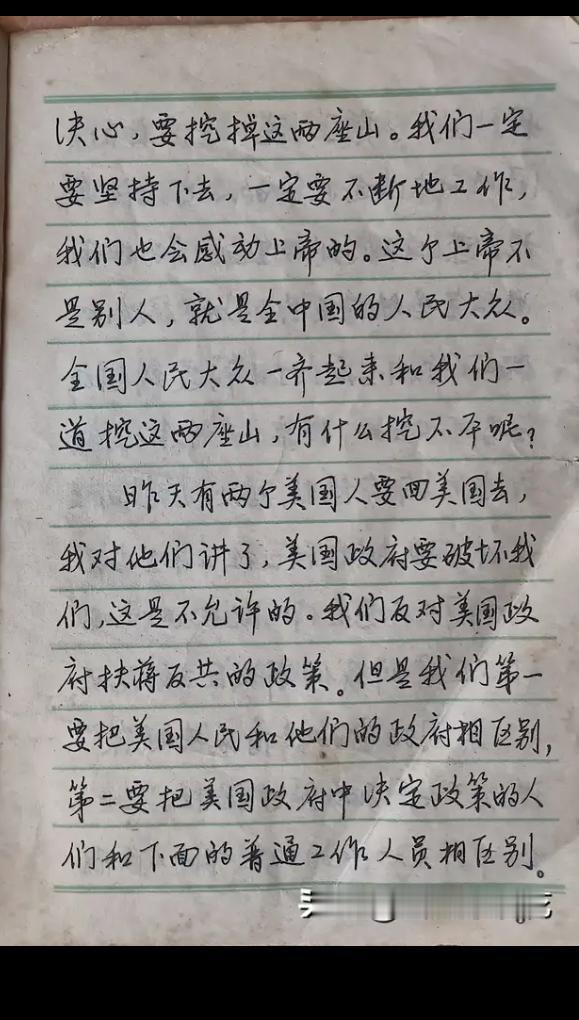 决心，要挖掉这两座山。我们一定
要坚持下去，一定要不断地工作，
我们也会感动上帝的。这个上帝不
是别人，就是全中国的人民大众。
全国人民大众一齐起来和我们一
道挖这两座山，有什么挖不平呢？
昨天有两个美国人要回美国去，
我对他们讲了，美国政府要破坏我
们，这是不允许的。我们反对美国政
府扶蒋反共的政策。但是我们第一
要把美国人民和他们的政府相区别，
第二要把美国政府中决定政策的人
们和下面的普通工作人员相区别。